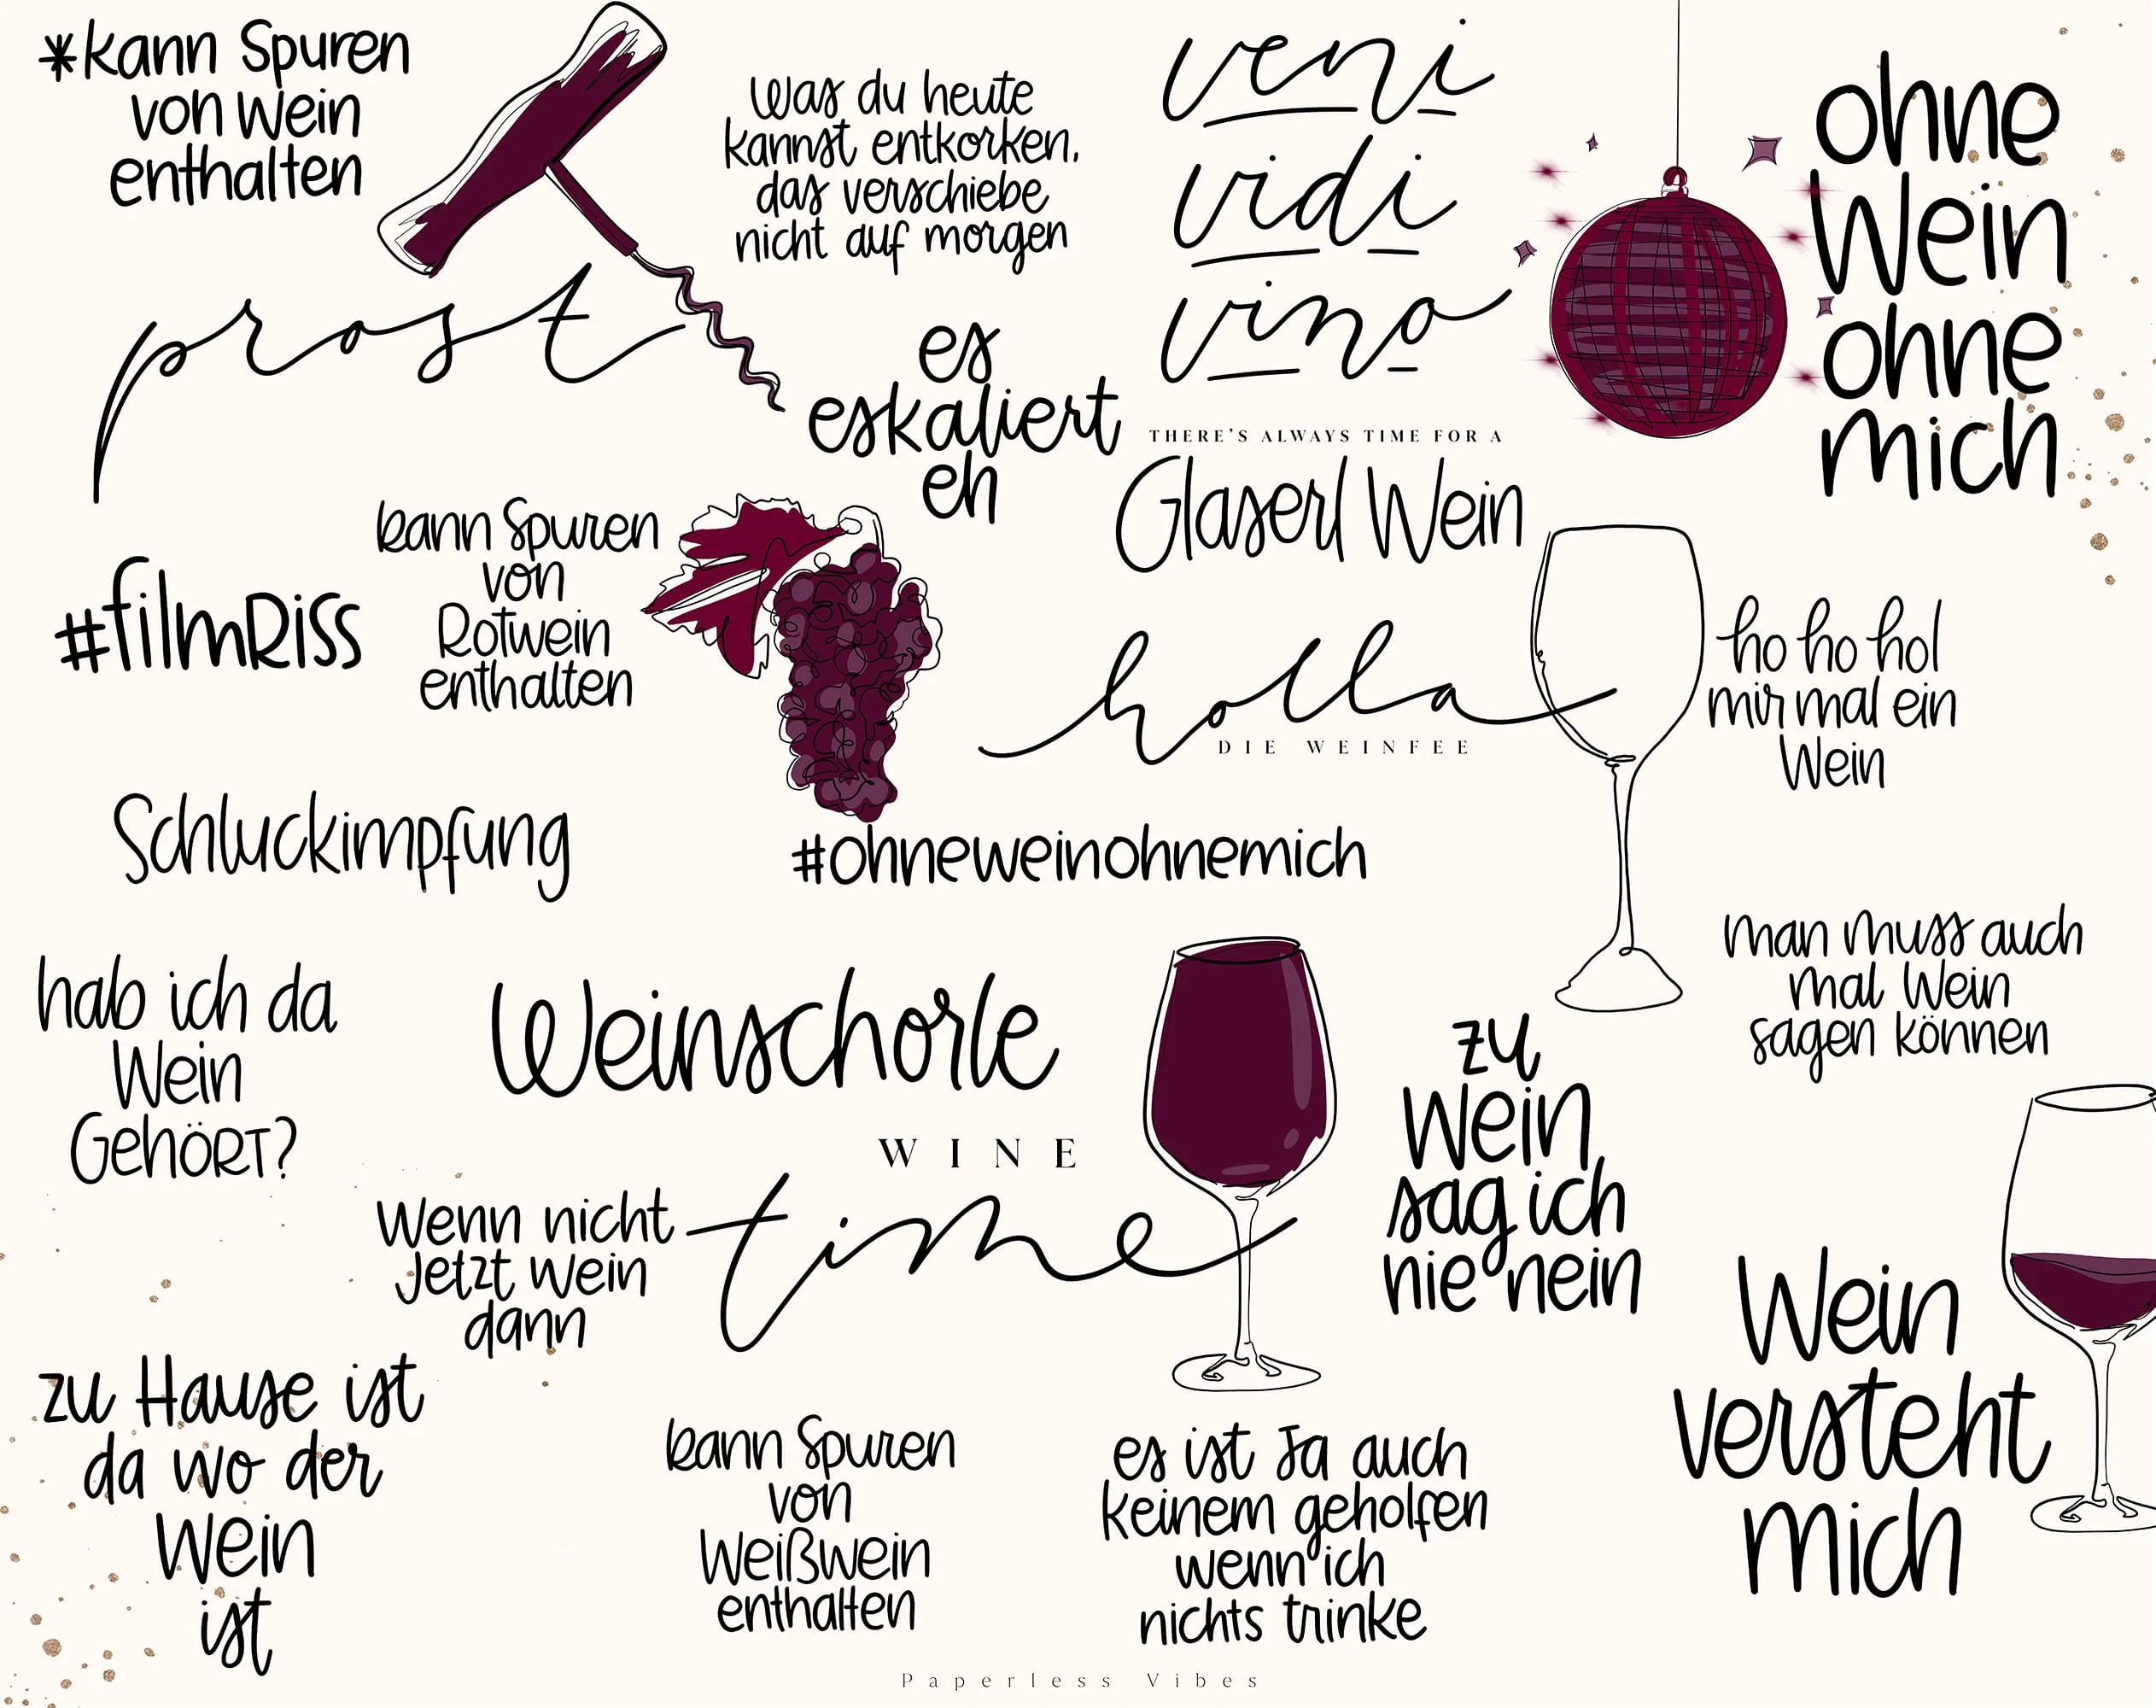 *kann Spuren
von Wein
enthalten
Was du heute
kannst entkorken,
das verschiebe
nicht auf morgen
veni
vidi
vino
ohne
Wein
ohne
mich
prost
es
eskaliert
eh
THERE'S ALWAYS TIME FOR A
Glaserl Wein
#filmRiss
kann Spuren
von
Rotwein
enthalten
holla
DIE WEINFEE
ho ho hol
mir mal ein
Wein
Schluckimpfung
#ohneweinohnemich
hab ich da
Wein
GehÖRT?
Weinschorle
man muss auch
mal Wein
sagen können
WINE
time
zu
Wein
sag ich
nie nein
Wenn nicht
Jetzt Wein
dann
Wein
versteht
mich
zu Hause ist
da wo der
Wein
ist
kann Spuren
von
Weißwein
enthalten
es ist Ja auch
keinem geholfen
wenn ich
nichts trinke
Paperless Vibes